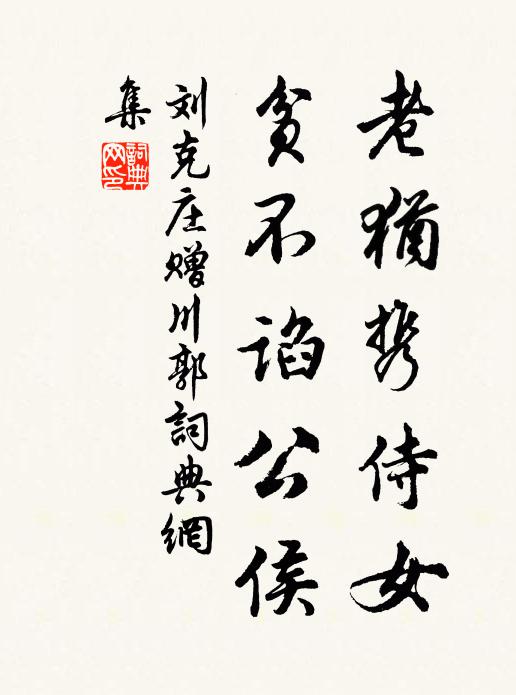 老犹携侍女
贫不谄公侯
刘克庄赠川郭詞典網
集
詞典
网印